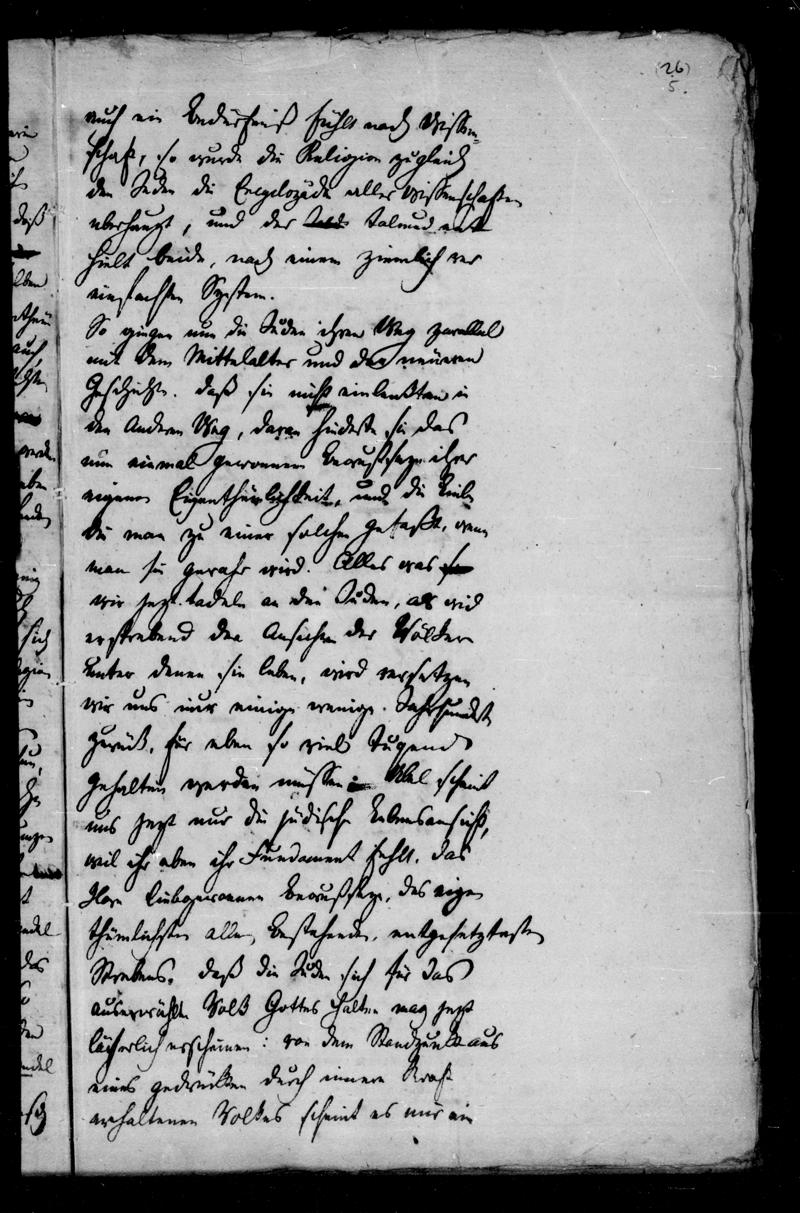 (26)
5.
auch ein Bedürfniß fühlt nach Wissen-
schaft, so wurde die Religion zugleich
den Juden die Encyclopädie aller Wissenschaften
überhaupt, und der Talmud ent
hielt beide, nach einem ziemlich ver
einfachten System.
So gingen nun die Juden ihren Weg parallel
mit dem Mittelalter und der neueren
Geschichte. Daß sie nicht einlenkten in
den Anderen Weg, daran hinderte sie das
nun einmal gewonnene Bewußtseyn ihrer
eigenen Eigenthümlichkeit, und die Liebe
die man zu einer solchen gefaßt, wenn
man sie gewahr wird. Alles was
wir jezt tadeln an den Juden, als wid
erstrebend den Ansichten der Völker
unter denen sie leben, wird versetzen
wir uns nur einige wenige Jahrhunderte
zurück, für eben so viel Tugend
gehalten werden müssen. Übel scheint
uns jezt nur die jüdische Lebensansicht,
weil ihr eben ihr Fundament fehlt. Das
klare liebgewonnene Bewußtseyn, des eigen
thümlichsten allem Bestehenden, entgegengesetztesten
Strebens. Daß die Juden sich für das
auserwählte Volk Gottes halten mag jezt
lächerlich erscheinen: von dem Standpunkt aus
eines gedrückten durch innere Kraft
erhaltenen Volkes scheint es mir ein